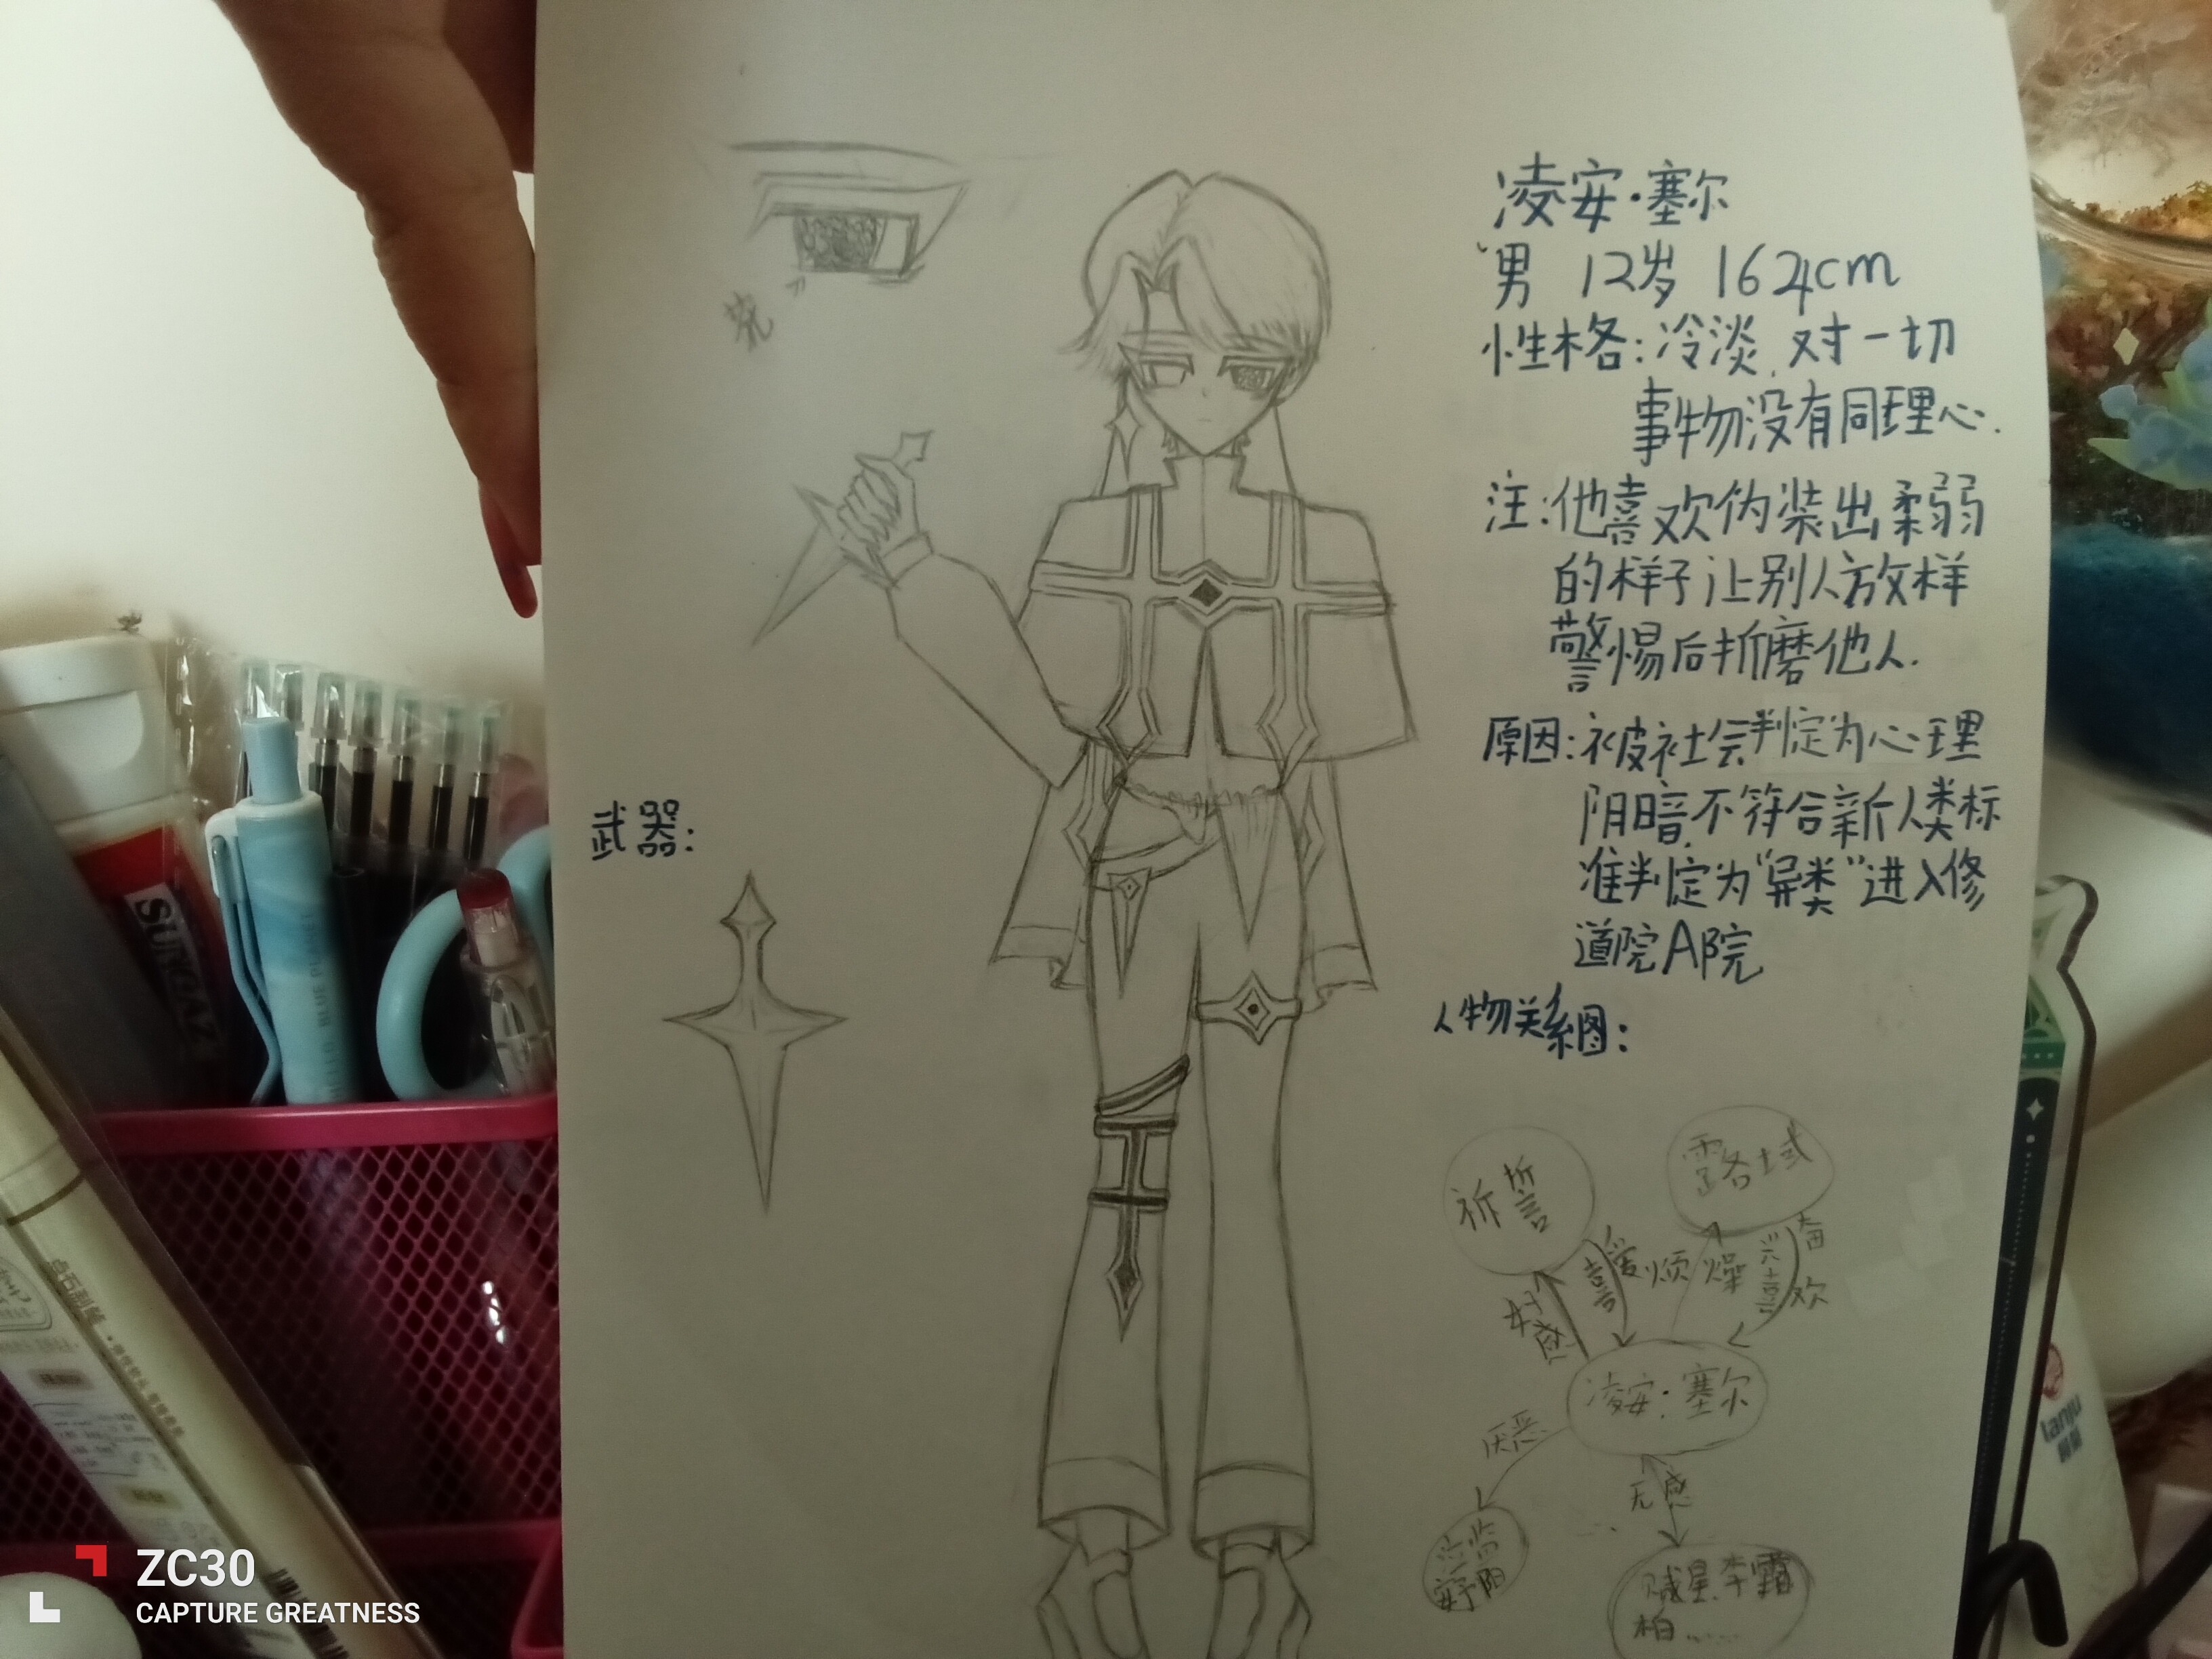 凌安·塞尔
男 12岁 162cm
性格:冷淡,对一切
事物没有同理心.
注:他喜欢伪装出柔弱
的样子让别人放样
警惕后折磨他人.
原因:被社会判定为心理
阴暗不符合新人类标
准判定为“异类”进入修
道院A院
人物关系图:
武器:
祈誓
露各域
喜爱
烦燥
兴奋
喜欢
好感
凌安·塞尔
厌恶
无感
ZC30
CAPTURE GREATNESS
SUNGAZ
BLUE PLANET
lanju